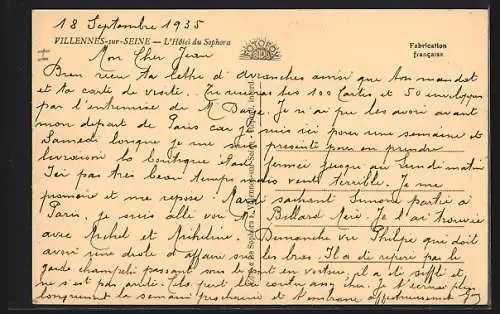 18 Septembre 1935
VILLENNES-sur-SEINE — L'Hôtel du Sophora
Fabrication
française
Mon Cher Jean
Bien reçu ta lettre d'Avranches ainsi que ton mandat
et ta carte de visite. Tu recevras les 100 Cartes et 50 enveloppes
par l'entremise de M. Je n'ai pu les avoir avant
mon départ de Paris car je suis ici pour une semaine et
Samedi lorsque je me suis présenté pour en prendre
livraison la boutique était fermée jusque au Lundi matin
Ici pas très beau temps mais vent terrible. Je me
promène et me repose. Mardi sachant Simone partie à
Paris, je suis allé voir Mme Billard Mère. Je l'ai trouvée
avec Michel et Micheline. Dimanche vu Philippe qui doit
avoir une drôle d'affaire sur les bras. Il a été repéré par le
garde champêtre passant sur le pont en voiture, il a été sifflé et
ne s'est pas arrêté. Cela peut lui coûter cher. Je t'écrirai plus
longuement la semaine prochaine et t'embrasse affectueusement